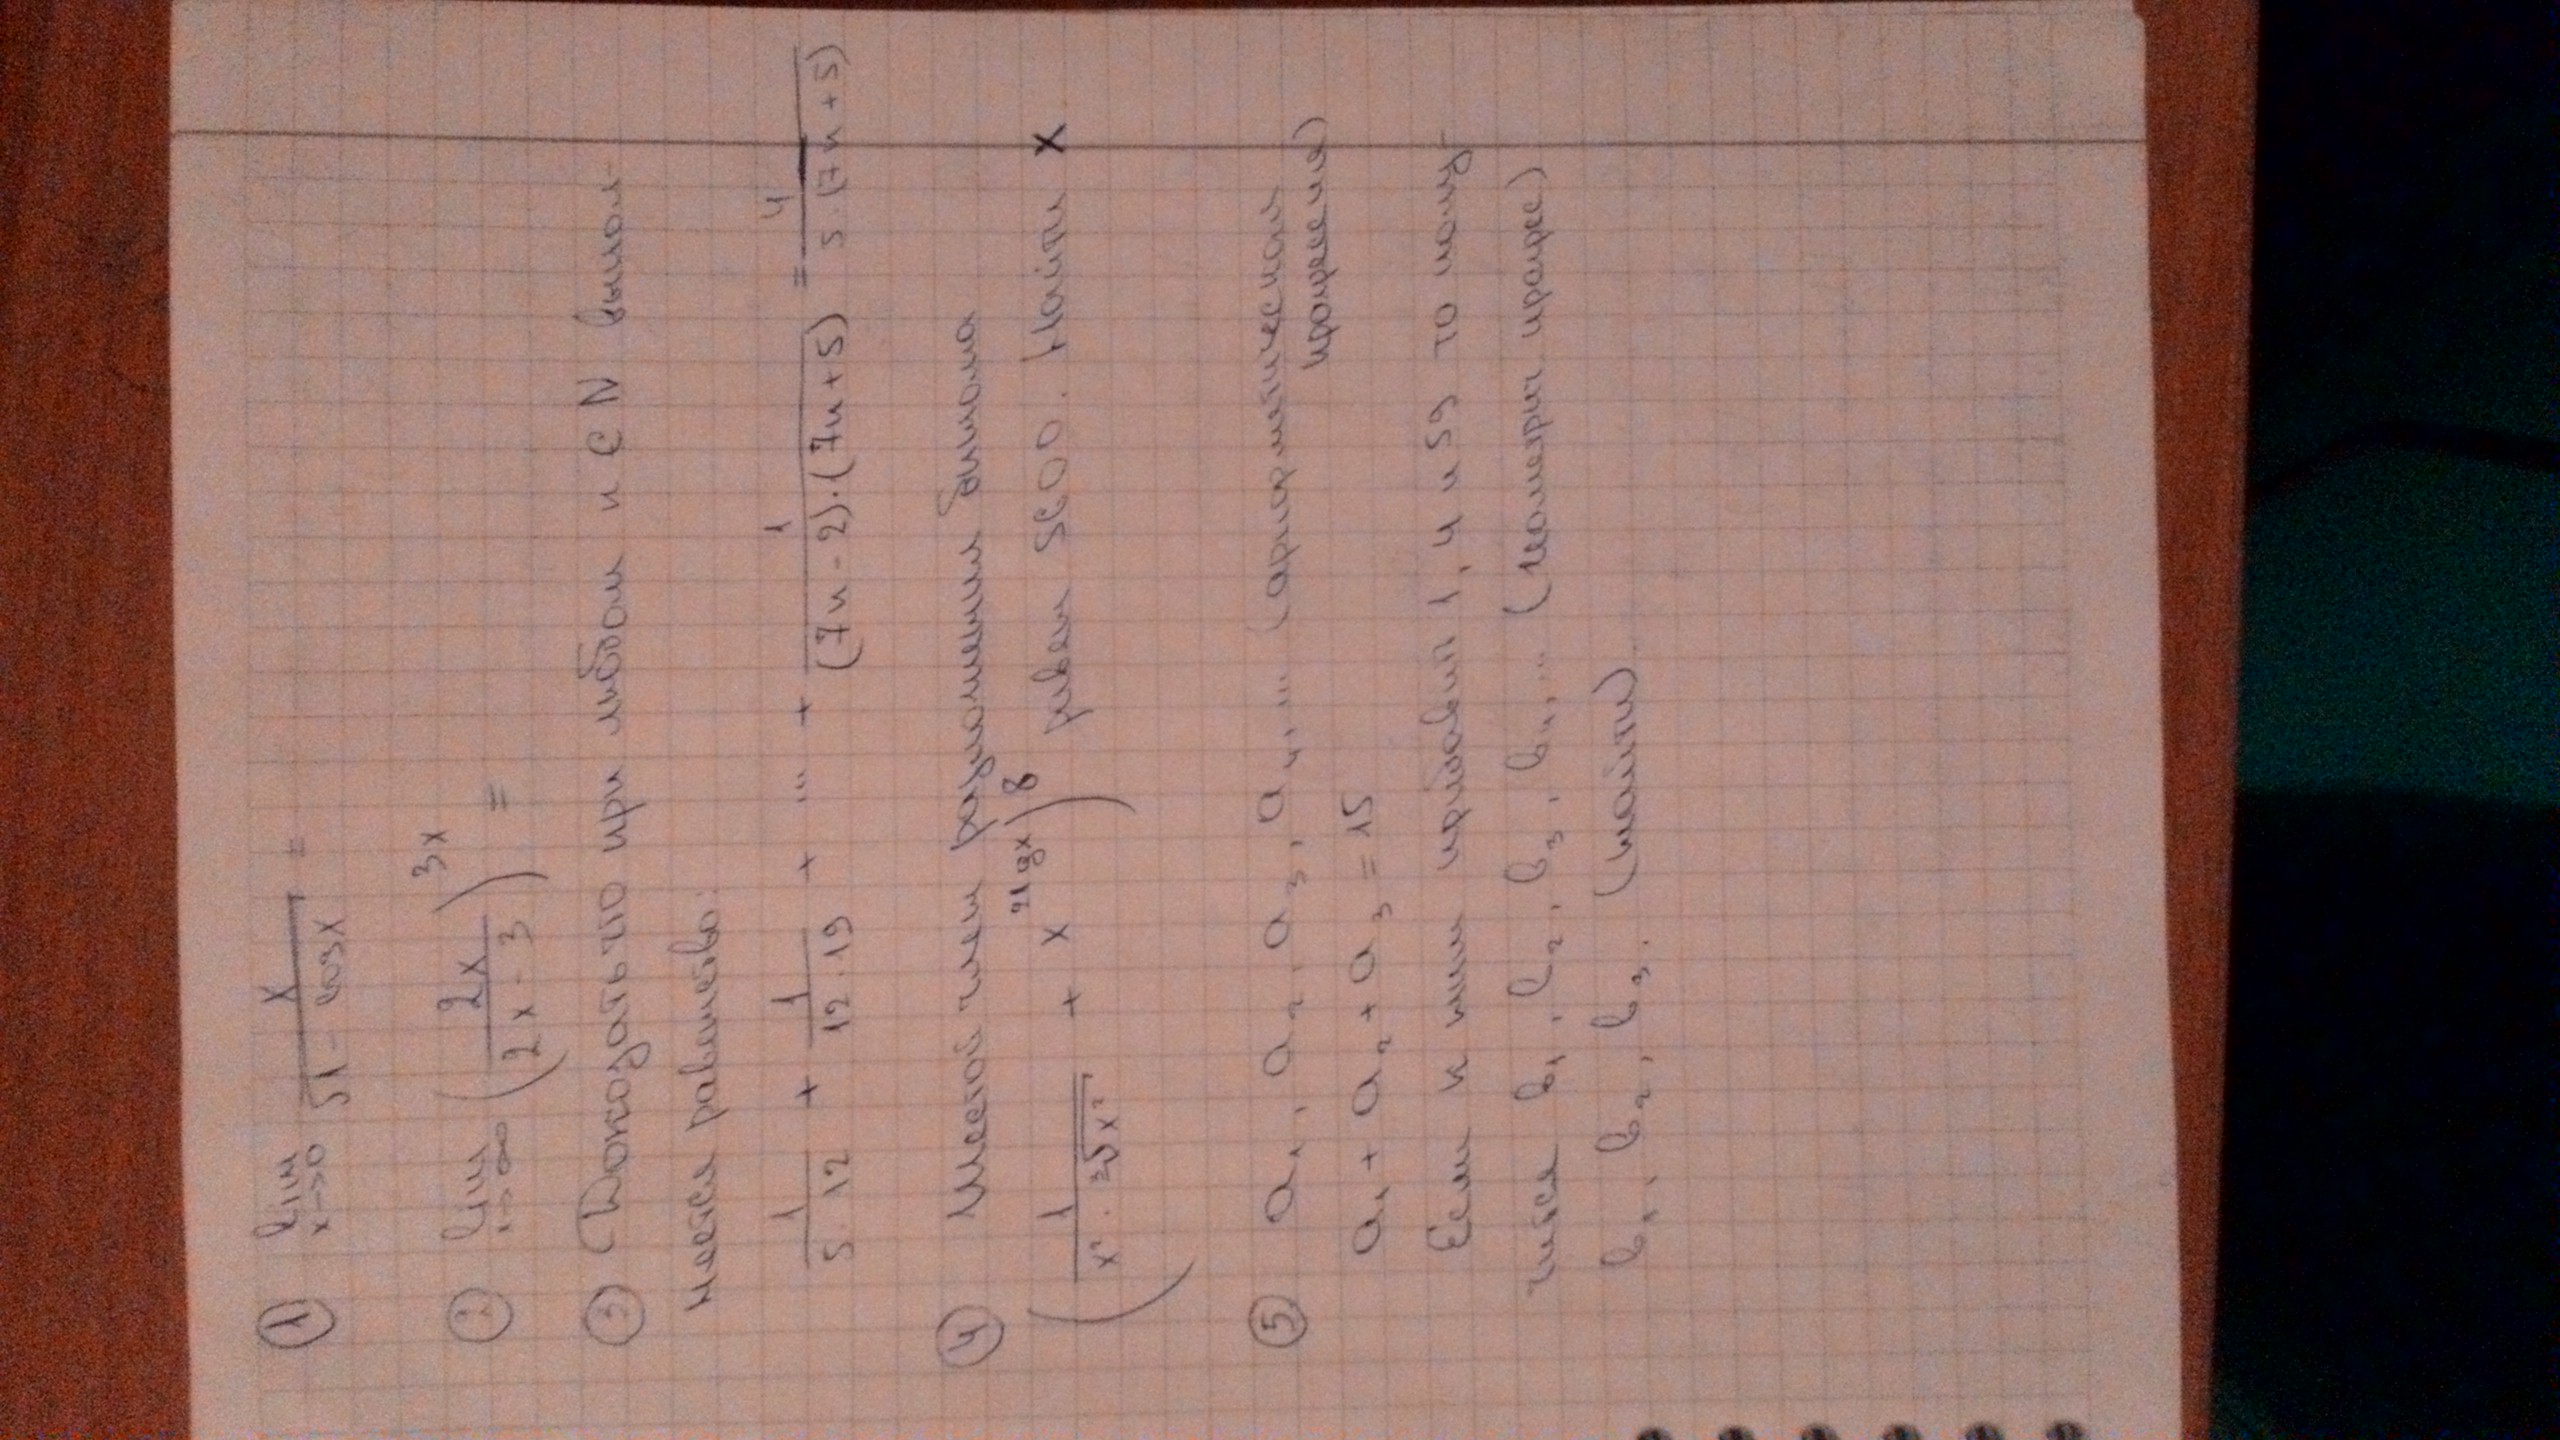 ① lim x→0 x / √1 - cosx =
② lim x→∞ (2x / 2x - 3)^3x =
③ Доказать что при любом n ∈ N выпол-
няется равенство:
1 / 5·12 + 1 / 12·19 + ... + 1 / (7n - 2)·(7n + 5) = n / 5·(7n + 5)
④ Шестой член разложения бинома
(1 / x²·³√x² + x^2lgx)^8 равен 5600. Найти x
⑤ a₁, a₂, a₃, a₄, ... (арифметическая
прогрессия)
a₁ + a₂ + a₃ = 15
Если к ним прибавит 1, 4 и 59 то полу-
чится b₁, b₂, b₃, b₄, ... (геометрич прогрес)
b₁, b₂, b₃. (найти)